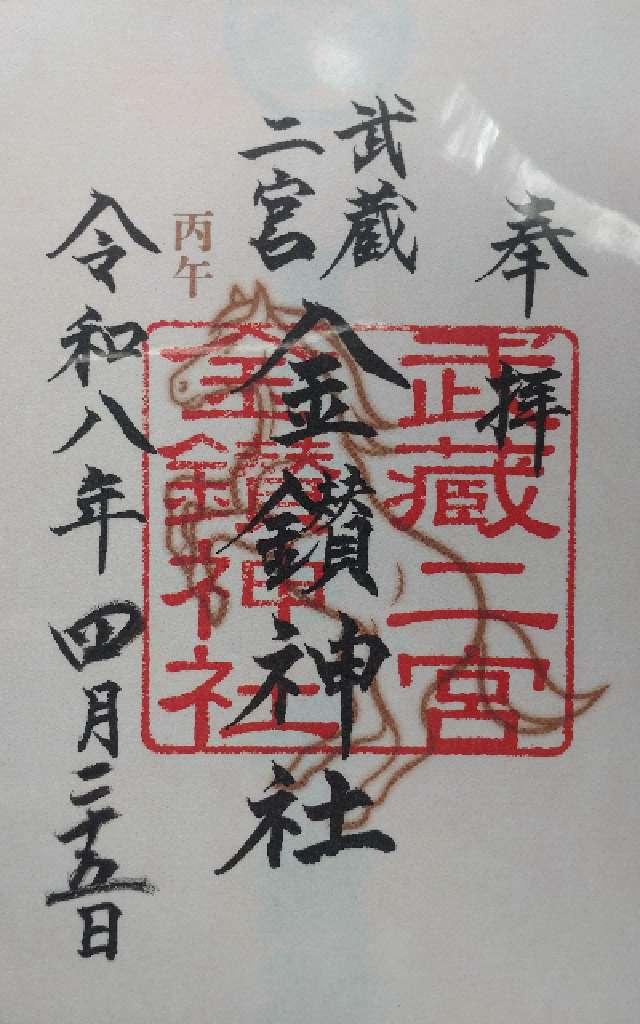 奉拝
武蔵
二宮
金鑚神社
武蔵二宮
金鑚神社
丙午
令和八年四月二十五日